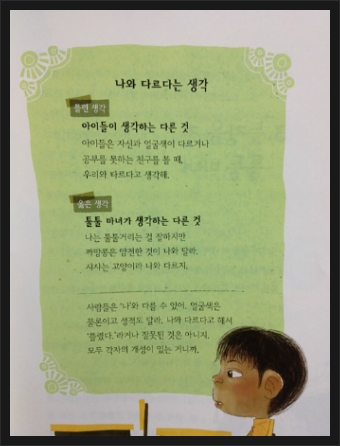 나와 다르다는 생각
틀린 생각
아이들이 생각하는 다른 것
아이들은 자신과 얼굴색이 다르거나
공부를 못하는 친구를 볼 때,
우리와 다르다고 생각해.
옳은 생각
툴툴 마녀가 생각하는 다른 것
나는 툴툴거리는 걸 잘하지만
까망콩은 얌전한 것이 나와 달라.
샤샤는 고양이라 나와 다르지.
사람들은 '나'와 다를 수 있어. 얼굴색은
물론이고 성격도 달라. 나와 다르다고 해서
'틀렸다.'라거나 잘못된 것은 아니지.
모두 각자의 개성이 있는 거니까.